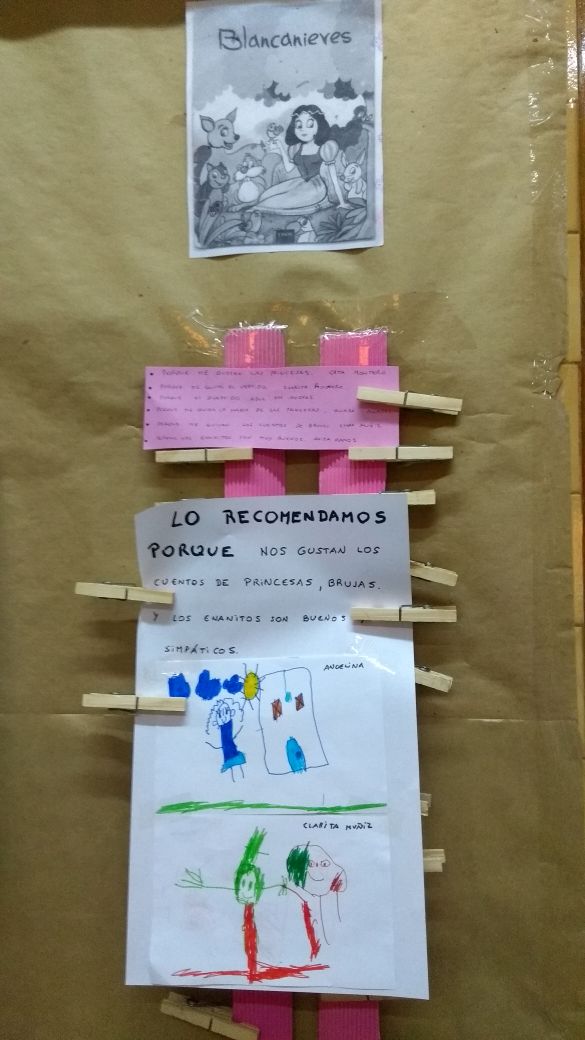 Blancanieves
• PORQUE ME GUSTAN LAS PRINCESAS. CATA MONTERO
• PORQUE ME GUSTA EL VESTIDO.
• PORQUE EL
• PORQUE ME GUSTA LA MAGIA DE LAS PRINCESAS.
• PORQUE ME GUSTAN LOS CUENTOS DE BRUJAS
LOS ENANITOS SON MUY BUENOS.
LO RECOMENDAMOS
PORQUE NOS GUSTAN LOS
CUENTOS DE PRINCESAS, BRUJAS.
Y LOS ENANITOS SON BUENOS
SIMPÁTICOS.
ANGELINA
CLARITA MUÑIZ